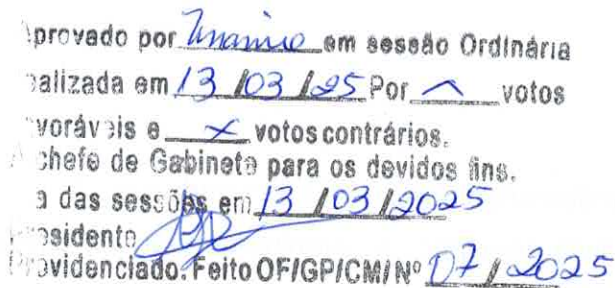 provado por Unanime em sessão Ordinária
alizada em 13 / 03 / 25 Por votos
voráveis e x votos contrários.
chefe de Gabinete para os devidos fins.
a das sessões em 13 / 03 / 2025
esidente
ovidenciado. Feito OF/GP/CM/Nº 07 / 2025